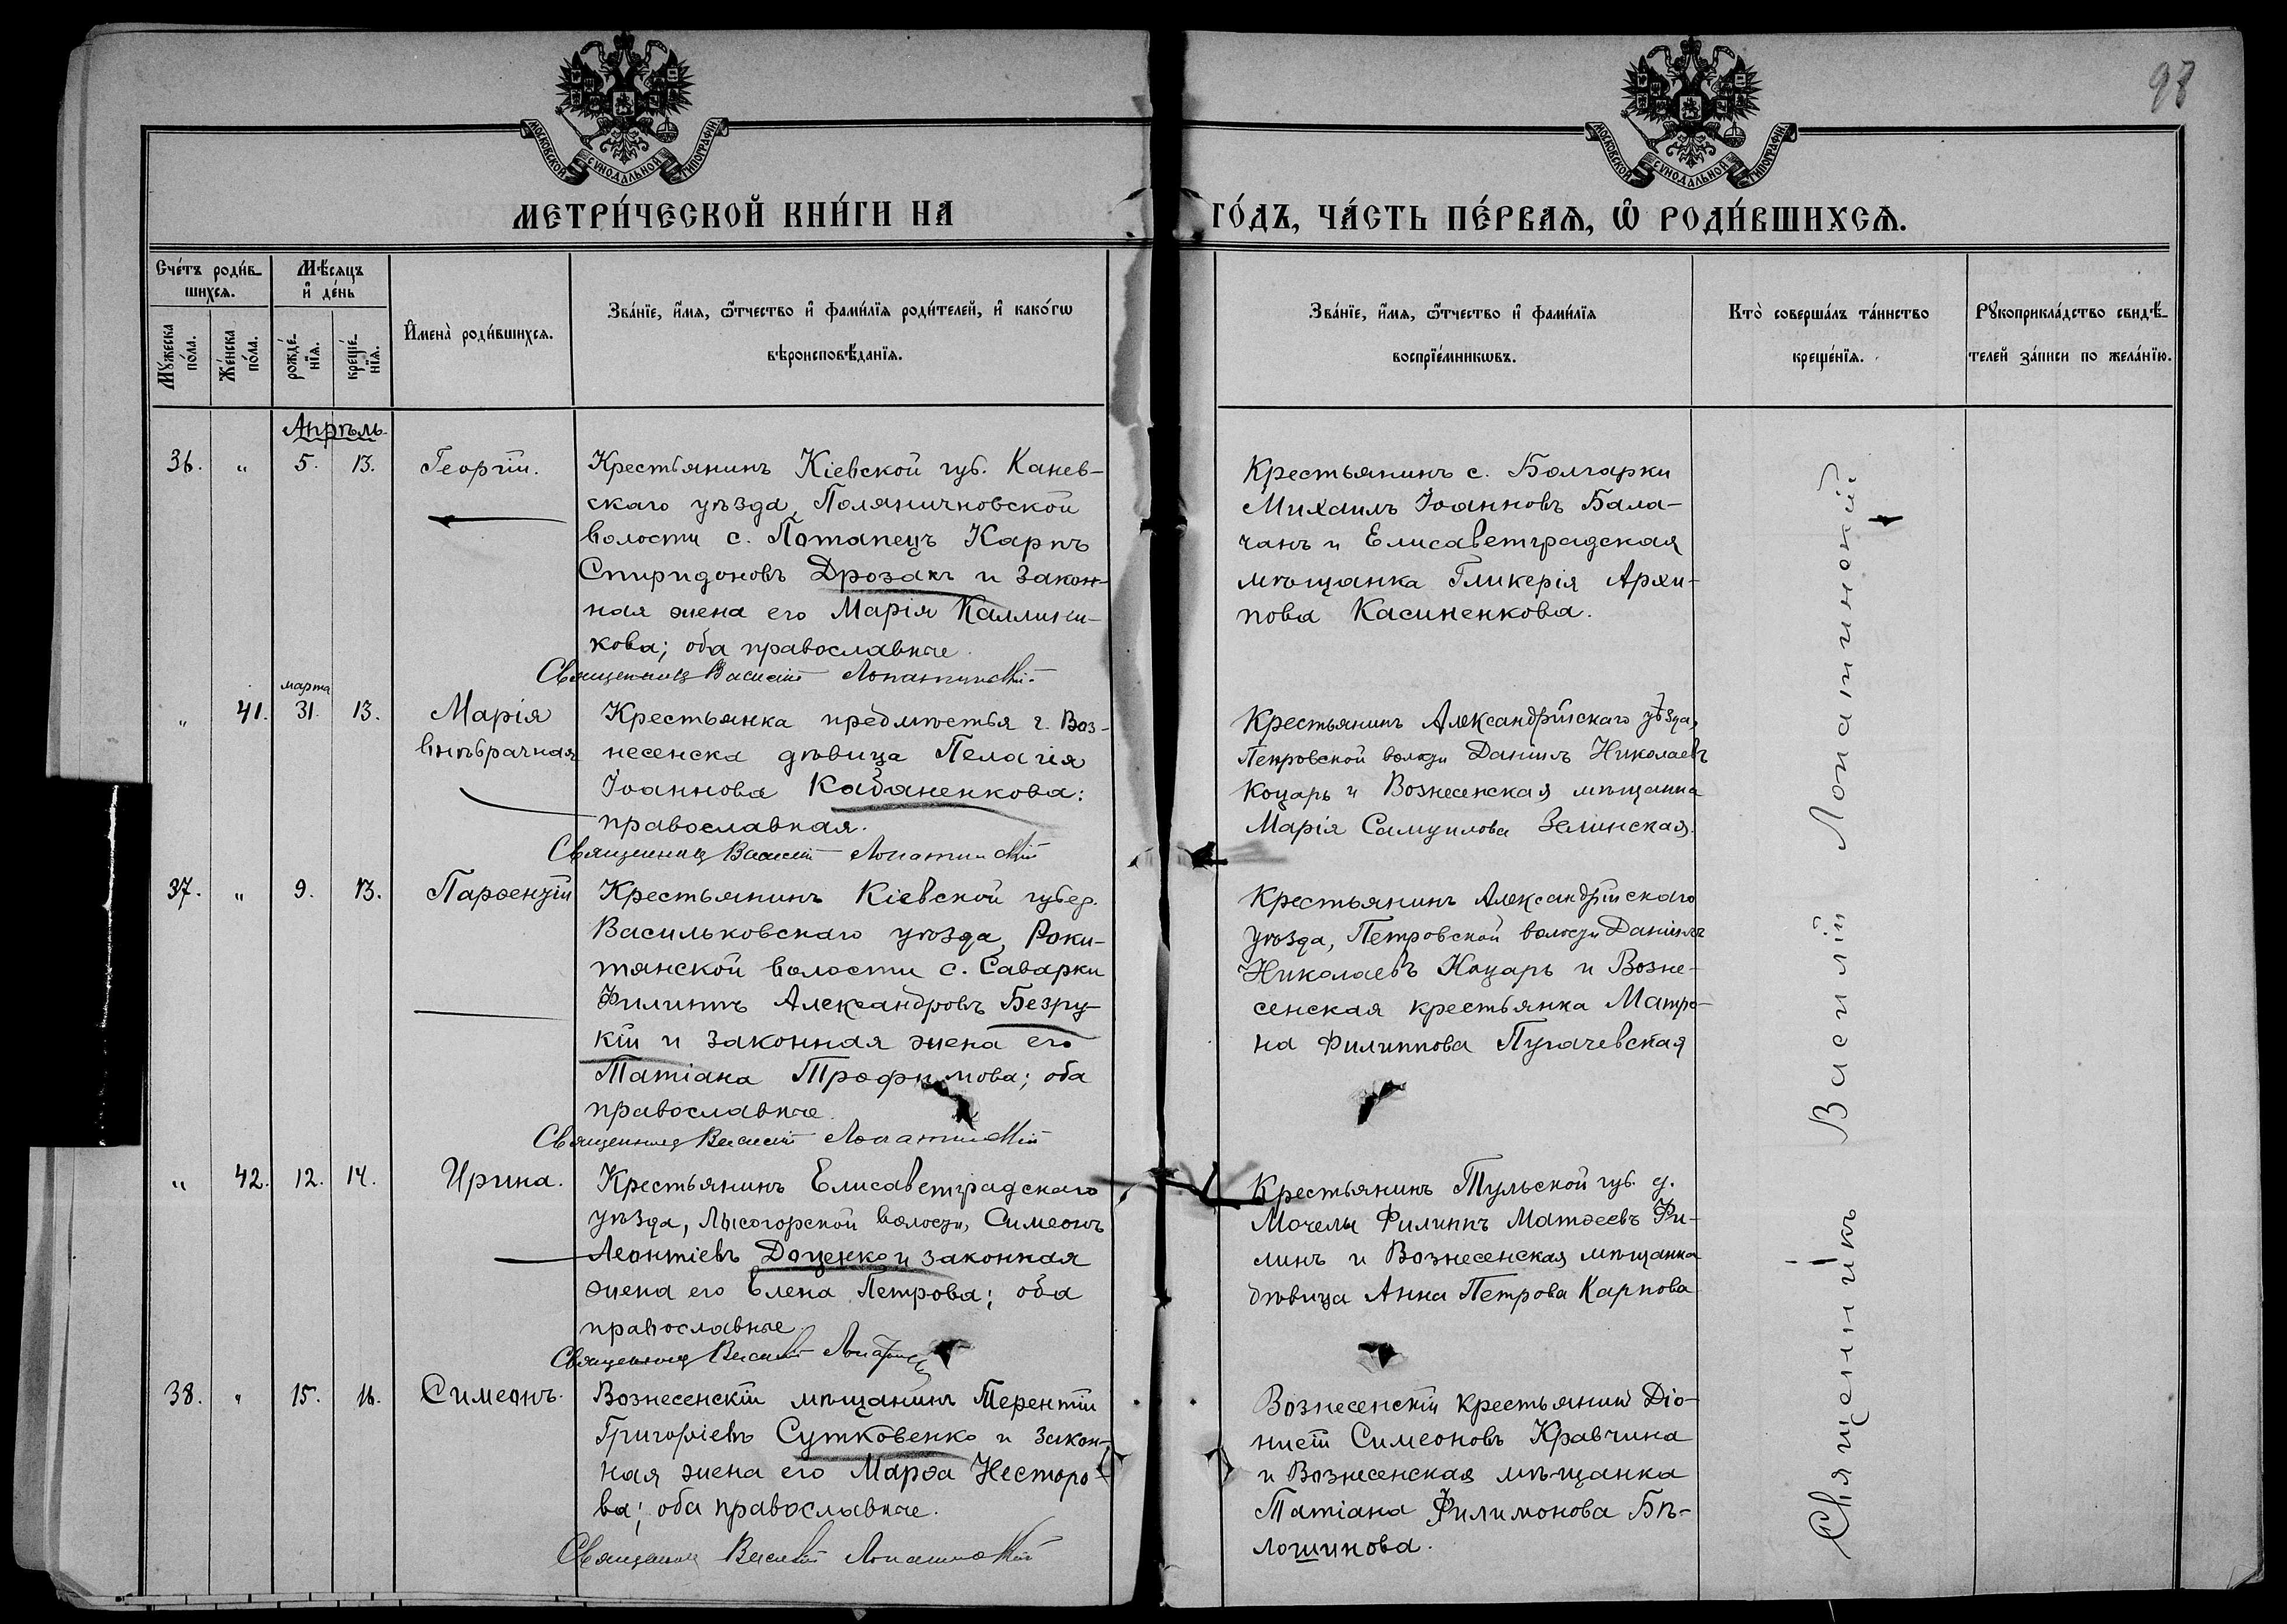 98
МОСКОВСКОЙ СУНОДАЛЬНОЙ ТИПОГРАФІИ
МОСКОВСКОЙ СУНОДАЛЬНОЙ ТИПОГРАФІИ
МЕТРИ́ЧЕСКОЙ КНИ́ГИ НА ГО́ДЪ, ЧА́СТЬ ПЕ́РВАѦ, Ѡ҆ РОДИ́ВШИХСѦ.
Сче́тъ роди́в-
шихсѧ.
Мꙋ́жеска по́ла.
Же́нска по́ла.
Мѣ́сѧцъ
и҆ де́нь
рожде́-
нїѧ.
креще́-
нїѧ.
И҆мена̀ роди́вшихсѧ.
Зва́нїе, и҆́мѧ, ѻ҆́тчество и҆ фами́лїѧ роди́телей, и҆ како́гѡ
вѣроисповѣ́данїѧ.
Зва́нїе, и҆́мѧ, ѻ҆́тчество и҆ фами́лїѧ
воспрїе́мникѡвъ.
Кто̀ соверша́лъ та́инство
креще́нїѧ.
Рꙋкоприкла́дство свидѣ́-
телей за́писи по жела́нїю.
Апрѣль
36. " 5. 13. Георгій.
Крестьянинъ Кіевской губ. Канев-
скаго уѣзда, Поляничковской
волости с. Потапецъ Карпъ
Спиридоновъ Дрозакъ и закон-
ная жена его Марія Каллини-
кова; оба православные.
Священникъ Василій Лопатинскій.
Крестьянинъ с. Болгарки
Михаилъ Іоанновъ Бала-
чанъ и Елисаветградская
мѣщанка Гликерія Архи-
пова Касиненкова.
марта
" 41. 31. 13. Марія
внѣбрачная
Крестьянка предмѣстья г. Воз-
несенска дѣвица Пелагія
Іоаннова Кабаненкова:
православная.
Священникъ Василій Лопатинскій
Крестьянинъ Александрійскаго уѣзда,
Петровской волости Даніилъ Николаевъ
Коцарь и Вознесенская мѣщанка
Марія Самуилова Зелинская.
37. " 9. 13. Парѳеній
Крестьянинъ Кіевской губер.
Васильковскаго уѣзда, Роки-
тянской волости с. Саварки
Филиппъ Александровъ Безру-
кій и законная жена его
Татіана Трофимова; оба
православные.
Священникъ Василій Лопатинскій
Крестьянинъ Александрійскаго
уѣзда, Петровской волости Даніилъ
Николаевъ Коцарь и Возне-
сенская крестьянка Матро-
на Филиппова Пугачевская
" 42. 12. 14. Ирина.
Крестьянинъ Елисаветградскаго
уѣзда, Лысогорской волости, Симеонъ
Леонтіевъ Доценко и законная
жена его Елена Петрова; оба
православные.
Священникъ Василій
Крестьянинъ Тульской губ. д.
Мочелы Филиппъ Матѳеевъ Фи-
линъ и Вознесенская мѣщанка
дѣвица Анна Петрова Карпова
38. " 15. 16. Симеонъ.
Вознесенскій мѣщанинъ Терентій
Григоріевъ Сутковенко и закон-
ная жена его Марѳа Несторо-
ва; оба православные.
Священникъ Василій Лопатинскій
Вознесенскій крестьянинъ Діо-
нисій Симеоновъ Кравчина
и Вознесенская мѣщанка
Татіана Филимонова Бѣ-
лошинова.
Священникъ Василій Лопатинскій